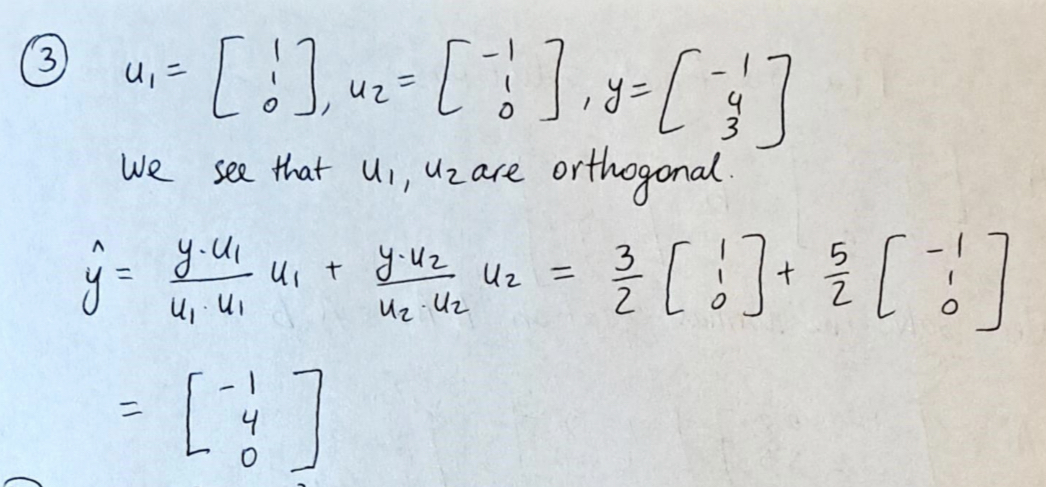 ③ u₁ = [1 1 0], u₂ = [-1 1 0], y = [-1 4 3]
We see that u₁, u₂ are orthogonal.
ŷ = y·u₁/u₁·u₁ u₁ + y·u₂/u₂·u₂ u₂ = 3/2 [1 1 0] + 5/2 [-1 1 0]
= [-1 4 0]